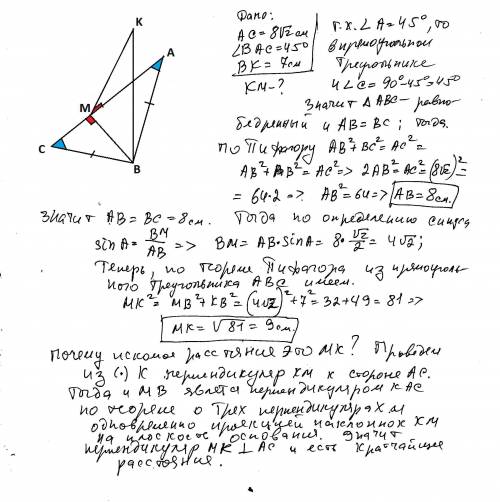 K
A
M
C
B
Дано:
AC = 8√2 см
∠BAC = 45°
BK = 7 см
KM - ?
т.к. ∠A = 45°, то
в прямоугольном
треугольнике
и ∠C = 90° - 45° = 45°
Значит △ABC - равно
бедренный и AB = BC; тогда
по Пифагору AB² + BC² = AC² =
AB² + AB² = AC² => 2AB² = AC² = (8√2)² =
= 64·2 => AB² = 64 => AB = 8 см.
Значит AB = BC = 8 см. Тогда по определению синуса
sin A = BM/AB => BM = AB·sin A = 8·√2/2 = 4√2;
Теперь, по теореме Пифагора из прямоуголь
ного треугольника ABC имеем.
MK² = MB² + KB² = (4√2)² + 7² = 32 + 49 = 81 =>
MK = √81 = 9 см.
Почему искомое расстояние это MK? Проведем
из (·) K перпендикуляр KM к стороне AC.
Тогда и MB является перпендикуляром к AC
по теореме о трех перпендикулярах и
одновременно проекцией наклонной KM
на плоскость основания. Значит
перпендикуляр MK ⊥ AC и есть кратчайшее
расстояние.